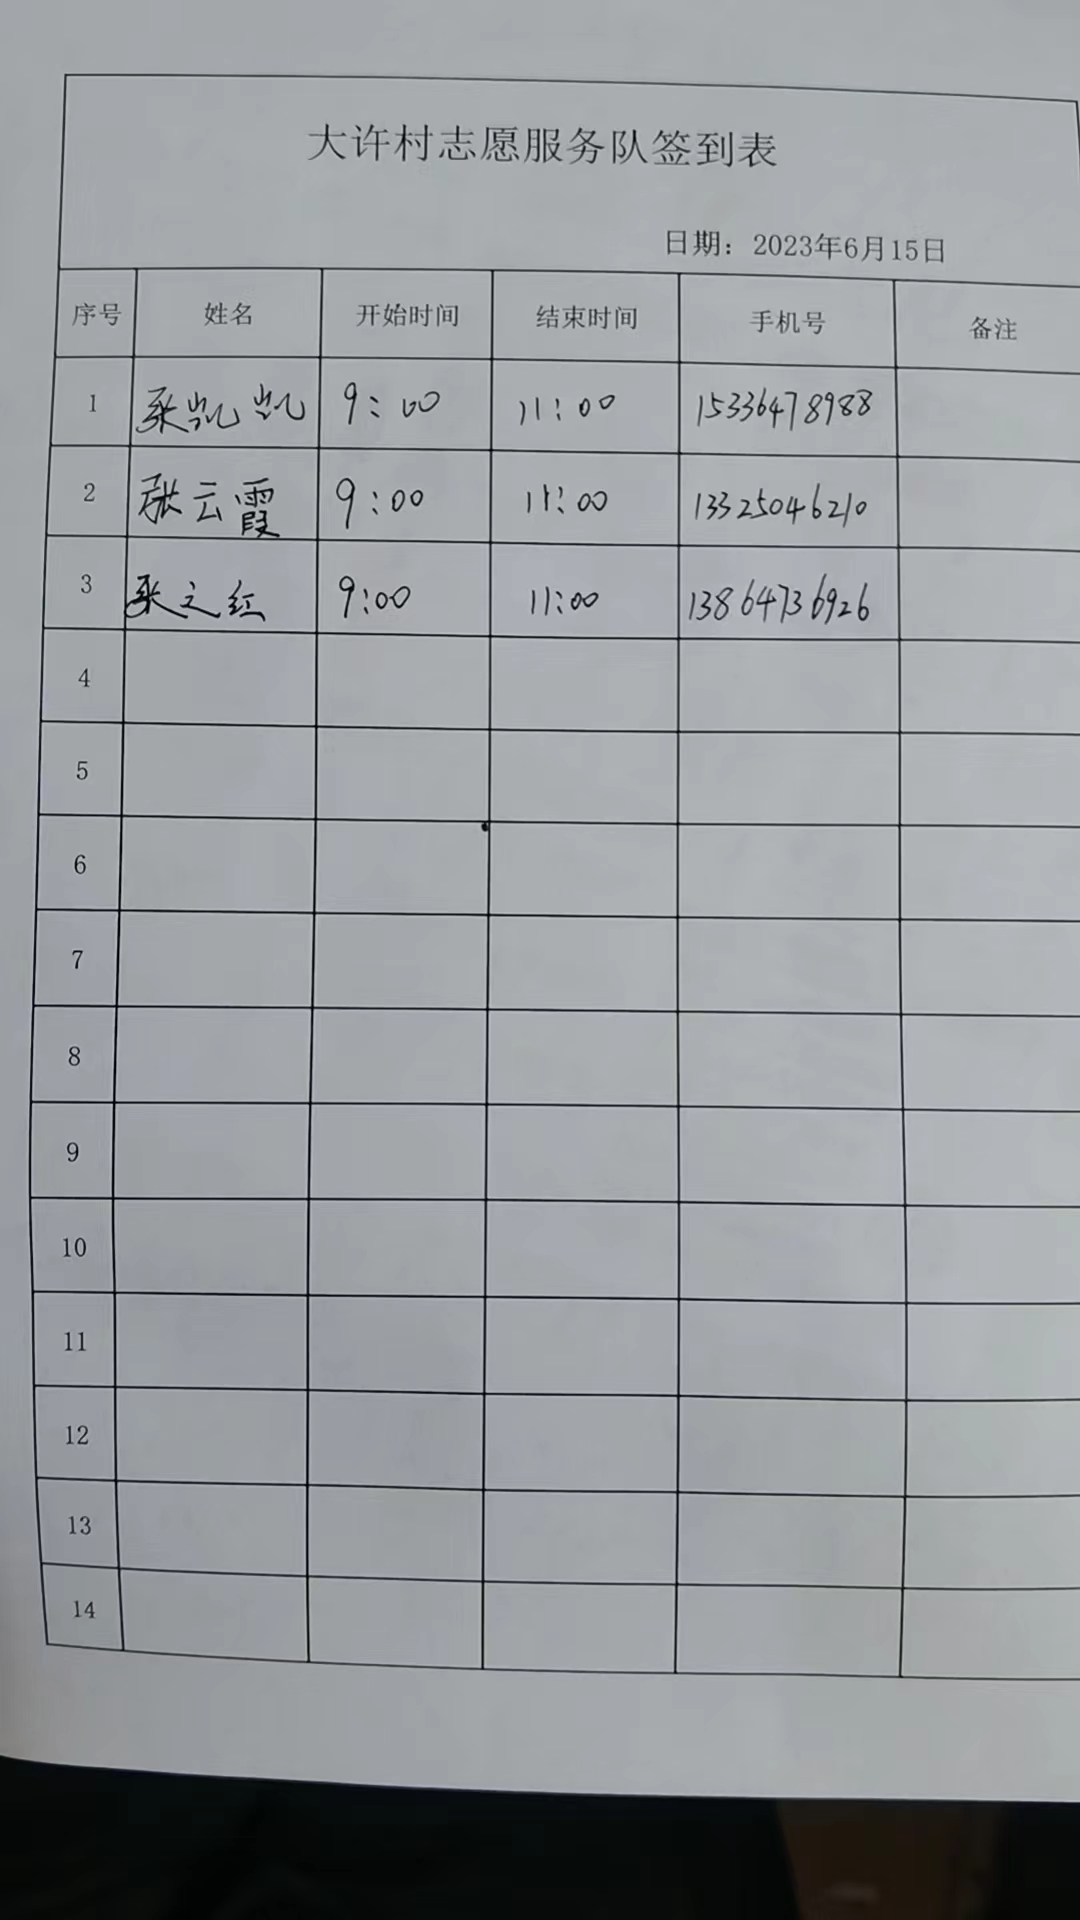 大许村志愿服务队签到表
日期：2023年6月15日
序号 姓名 开始时间 结束时间 手机号 备注
1 张凯凯 9:00 11:00 15336478988
2 张云霞 9:00 11:00 13325046210
3 张之红 9:00 11:00 13864736926
4
5
6
7
8
9
10
11
12
13
14